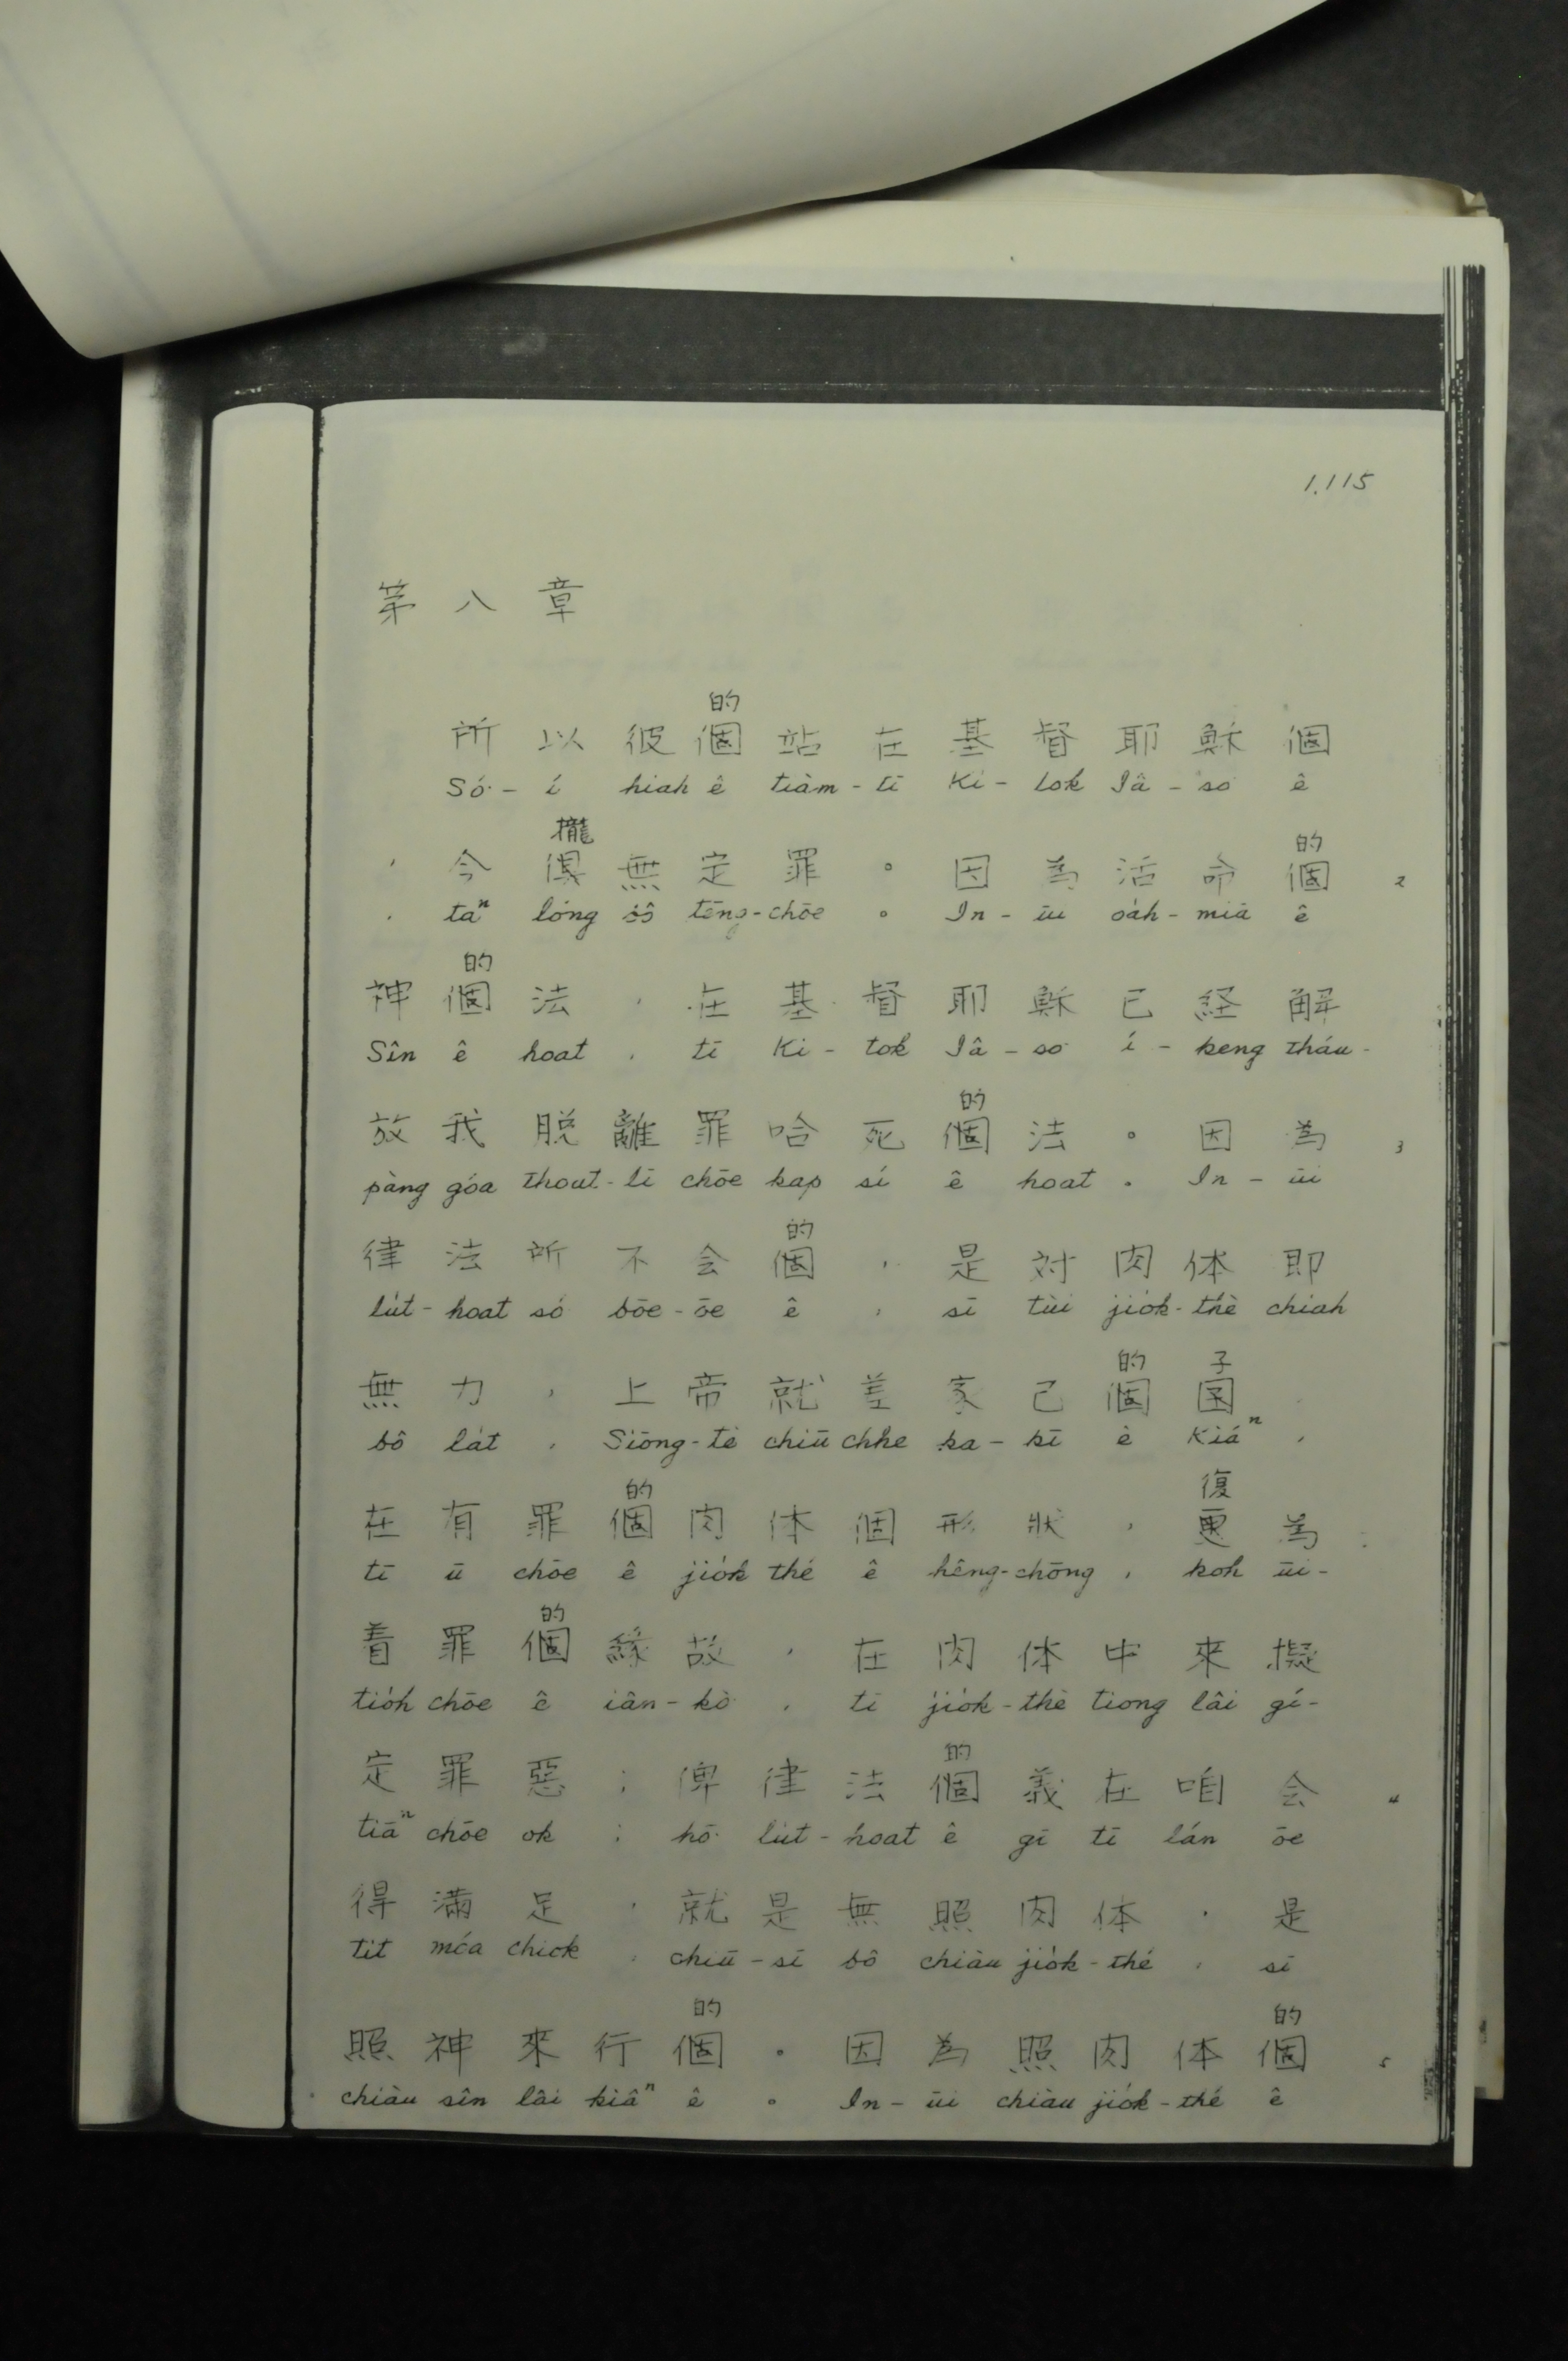 1.115
第八章
的
所以彼個站在基督耶穌個
Só͘-í hiah ê tiàm-tī Ki-tok Iâ-so ê
攏
的
，今儱無定罪。因為活命個 2
, taⁿ lóng bô tēng-chōe 。 In-ūi oa̍h-miā ê
的
神個法，在基督耶穌已経解
Sîn ê hoat , tī Ki-tok Iâ-so͘ í-keng tháu-
的
放我脱離罪哈死個法。因為 3
pàng góa thoat-lī chōe kap sí ê hoat 。 In-ūi
的
律法所不会個，是対肉体即
lu̍t-hoat só͘ bōe-ōe ê , sī tùi jio̍k-thé chiah
的 子
無力，上帝就差家己個囝，
bô la̍t , Siōng-tè chiū chhe ka-kī ê Kiáⁿ ,
的 復
在有罪個肉体個形狀，更為
tī ū chōe ê jio̍k thé ê hêng-chōng , koh ūi-
的
着罪個緣故，在肉体中來擬
tio̍h chōe ê iân-kò͘ , tī jio̍k-thé tiong lâi gí-
的
定罪惡；俾律法個義在咱会 4
tiāⁿ chōe ok ; hō͘ lu̍t-hoat ê gī tī lán ōe
得滿足，就是無照肉体，是
tit móa chiok , chiū-sī bô chiàu jio̍k-thé , sī
的 的
照神來行個。因為照肉体個 5
chiàu sîn lâi kiâⁿ ê 。 In-ūi chiàu jio̍k-thé ê